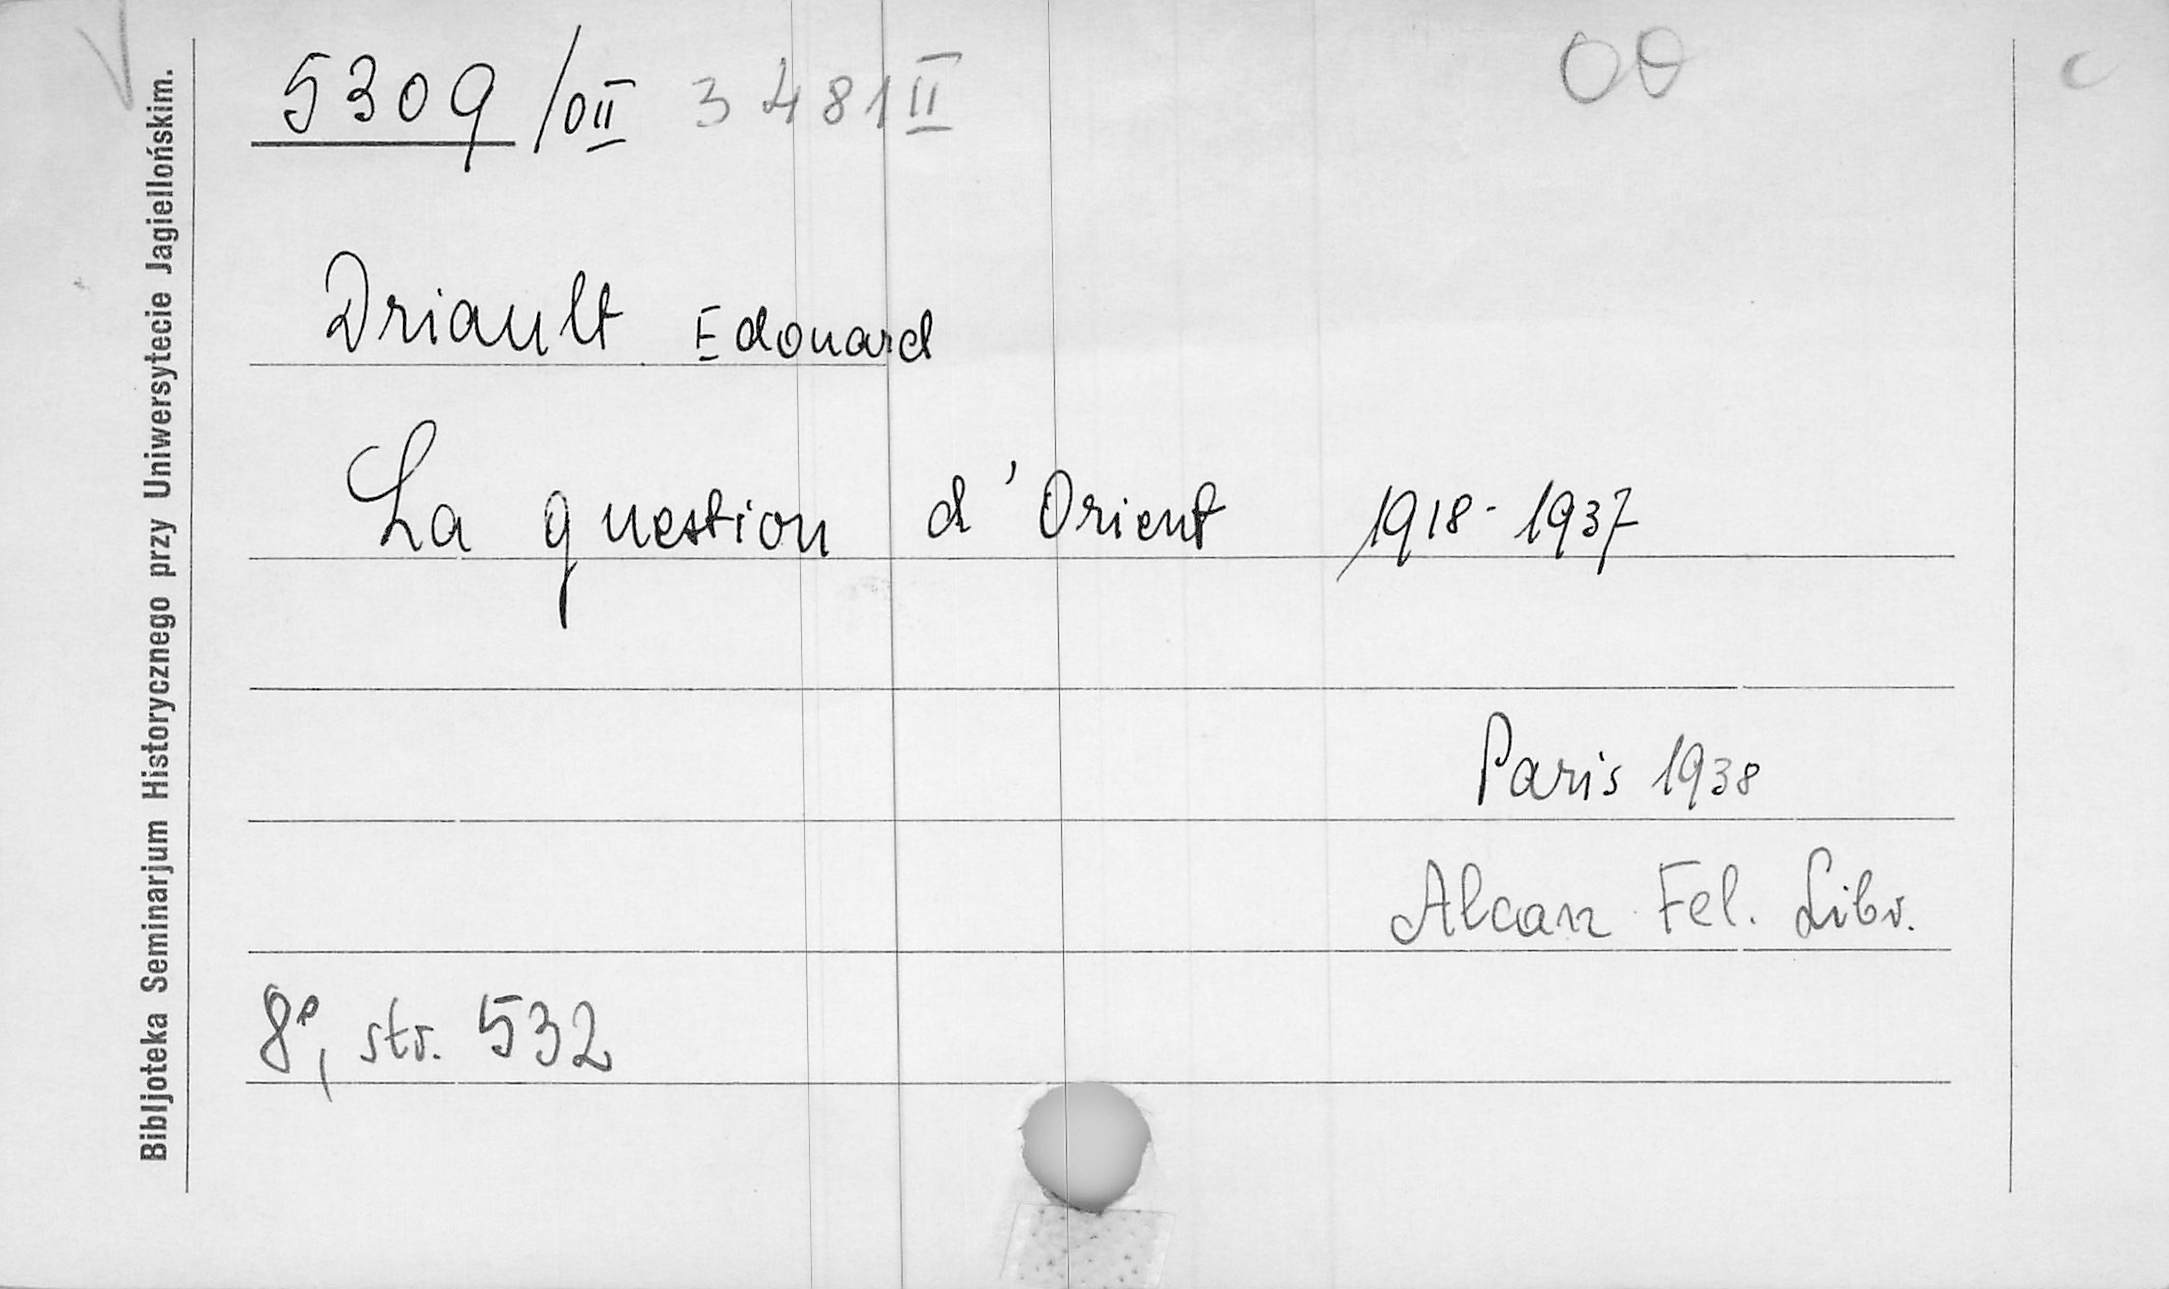 5309/OII 3481 II
Driault Edouard
La question d'Orient 1918-1937
Paris 1938
Alcan Fel. Libr.
8°, str. 532
Bibljoteka Seminarjum Historycznego przy Uniwersytecie Jagiellońskim.